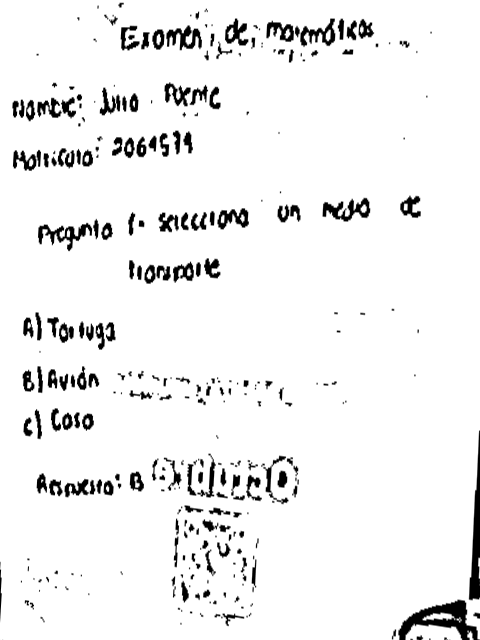 Examen de matemáticas
Nombre: Julio Puente
Matrícula: 2064574
Pregunta 1- selecciona un medio de
transporte
A) Tortuga
B) Avión
C) Casa
Respuesta: B